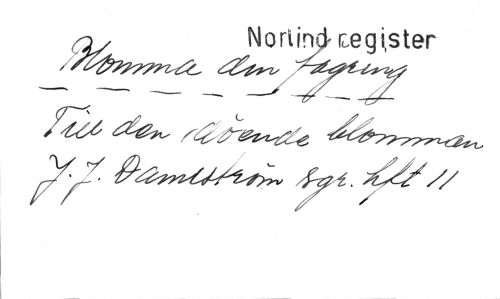 Norlind register
Blomma din fagring
Till den döende blomman
J. J. Damström sgr. hft 11